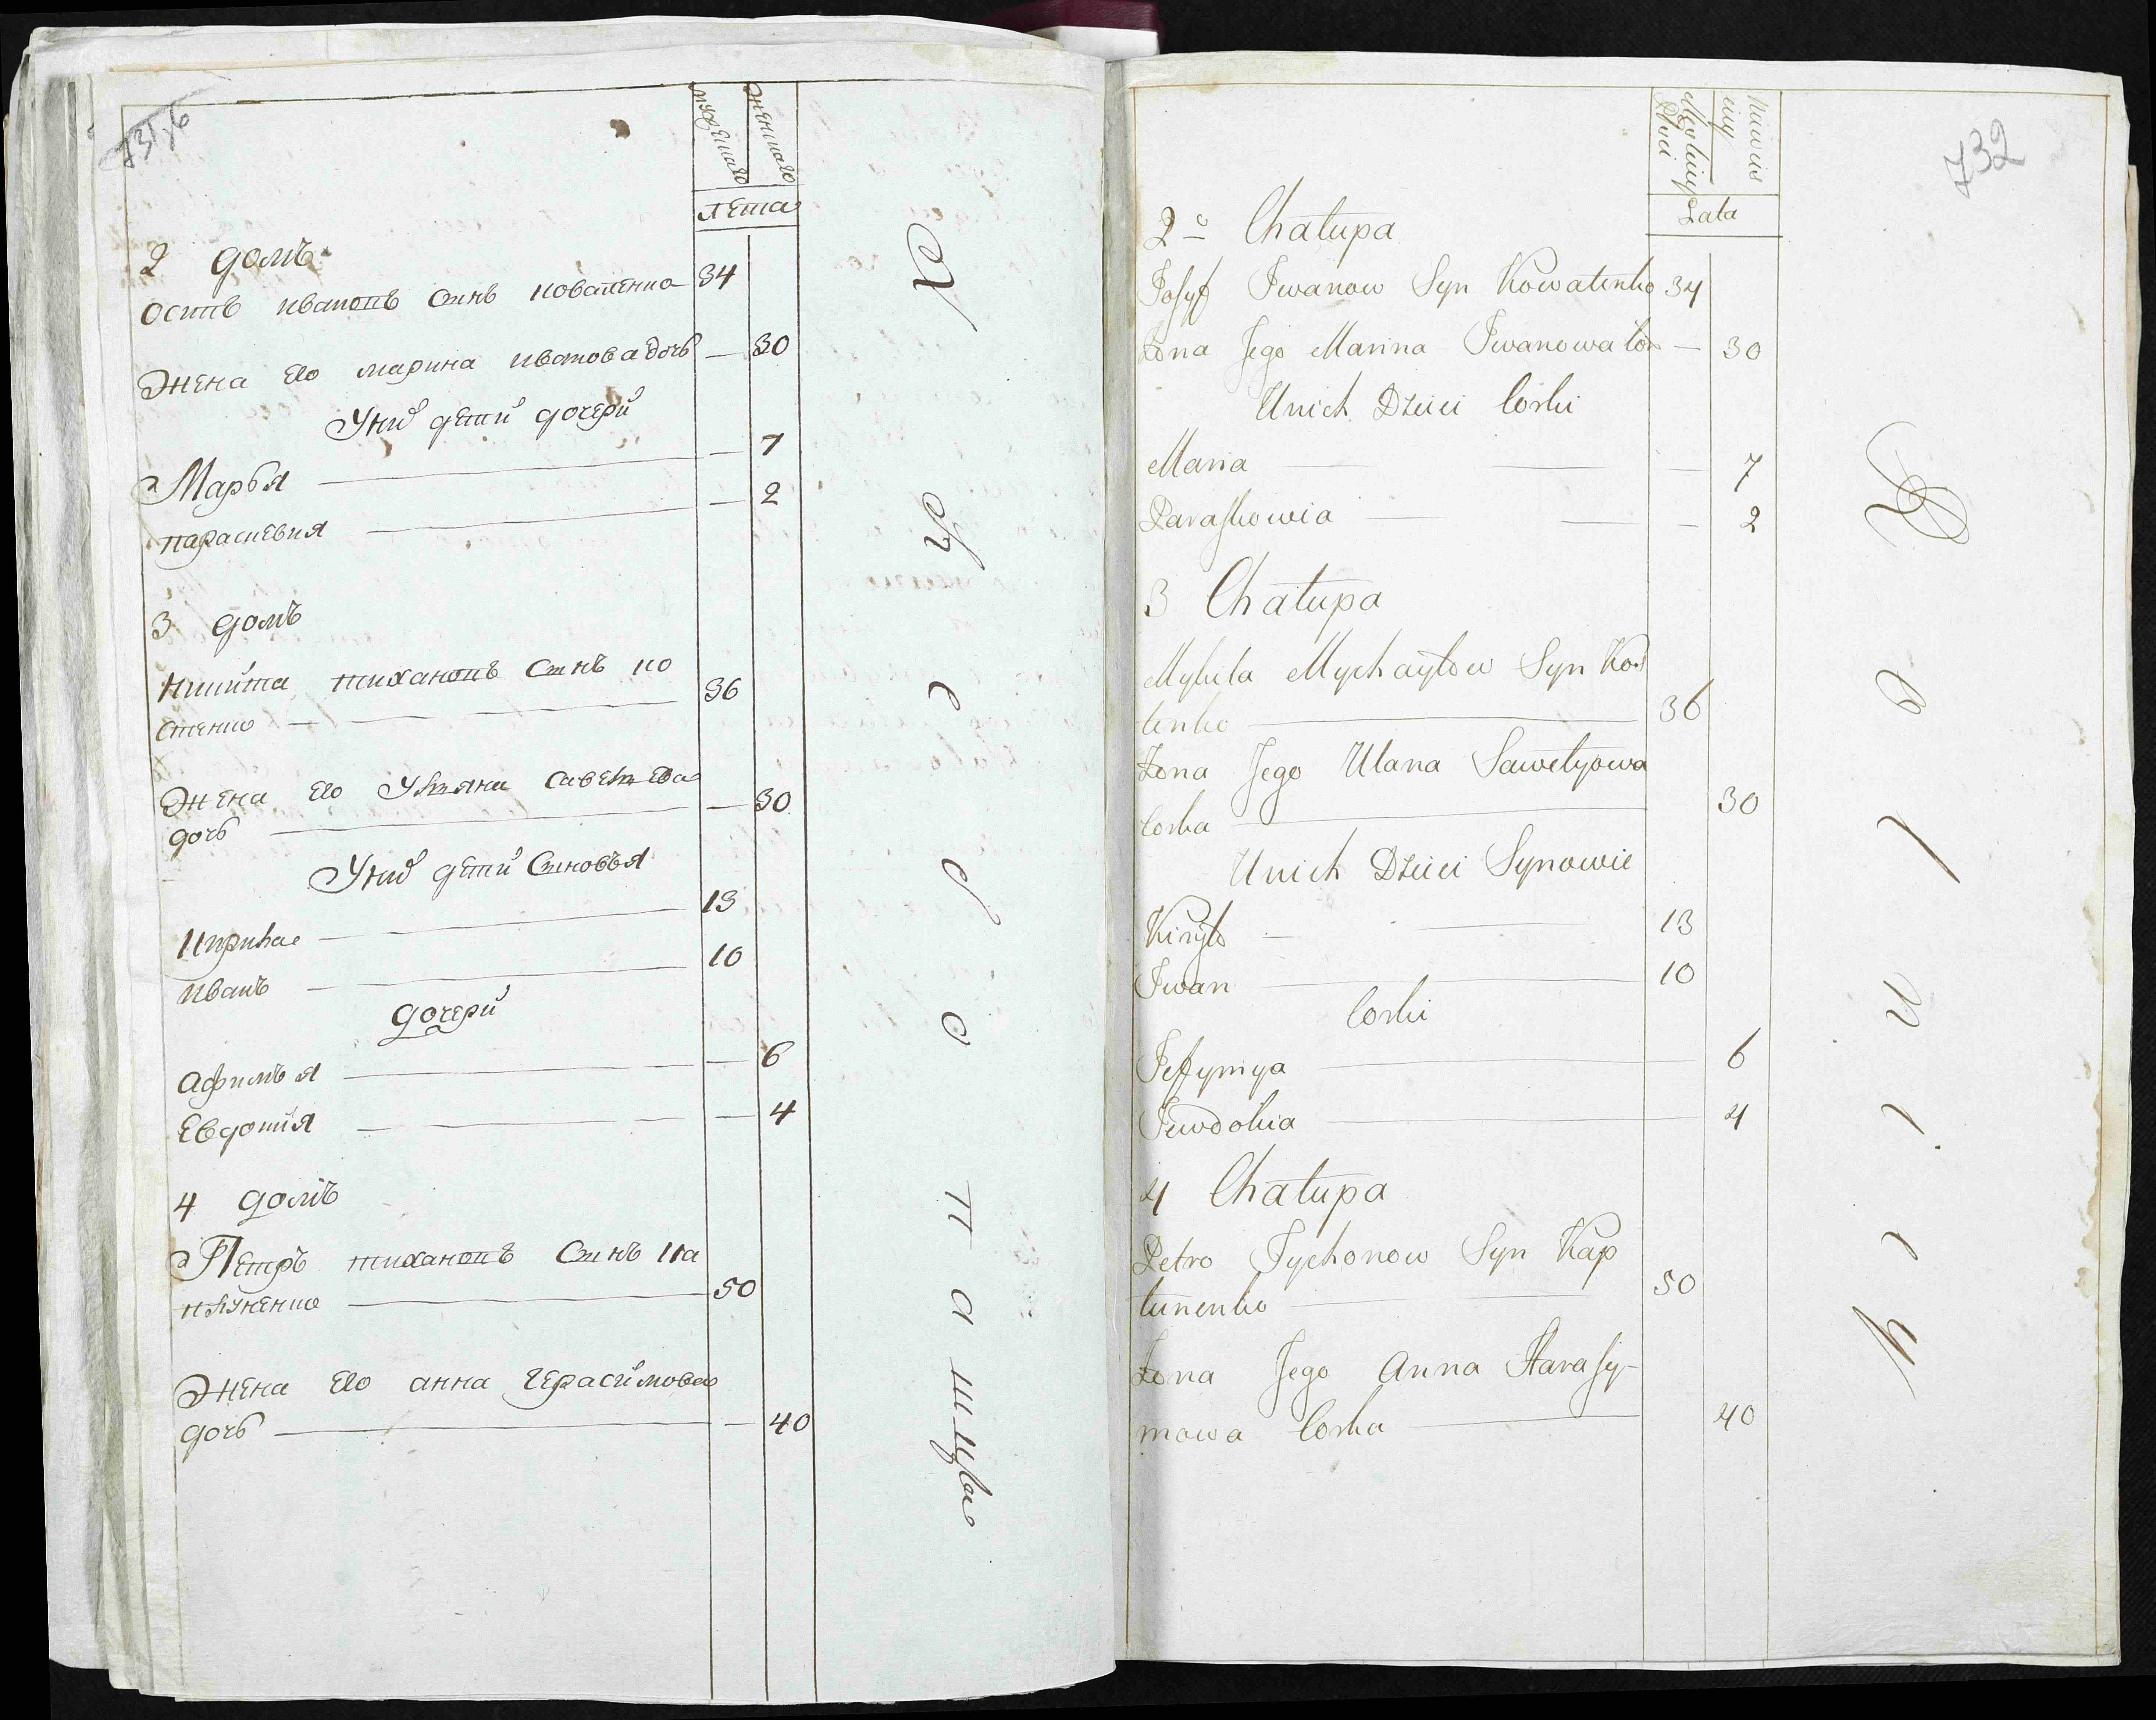 731 об
мужеска
женска
лета
2 домъ
осипъ ивановъ синъ коваленко 34
жена его марина иванова дочь — 30
У них дети дочери
Марья — 7
параскевия — 2
3 домъ
никита тихановъ синъ ко
стенко — 36
жена его Ульяна савельева
дочь — 30
У них дети Синовья
Кирило 13
иванъ 10
дочери
афимья — 6
Евдокия — 4
4 домъ
Петръ тихановъ Синъ Ка
плуненко 50
жена его анна герасимова
дочь — 40
Х л е б о п а шцы
732
Męskiey
Płci
Niewies
ciey
Lata
2e Chałupa
Josyf Iwanow Syn Kowalenko 34
Żona Jego Marina Iwanowa Cor — 30
Unich Dzieci Corki
Maria — 7
Paraskowia — 2
3 Chałupa
Mykita Mychayłow Syn Kos
tenko 36
Żona Jego Ulana Sawelyowa
Corka 30
Unich Dzieci Synowie
Kiryło 13
Iwan 10
Corki
Jeffymya 6
Jewdokia 4
4 Chałupa
Petro Tychonow Syn Kap
łunenko 50
Żona Jego Anna Harasy-
mowa Corka 40
R o l n i c y